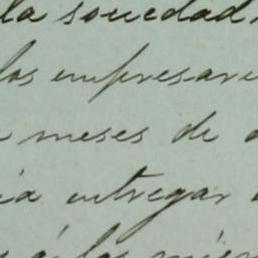 la sociedad
los empresari
meses de
ia entregar
á los mien